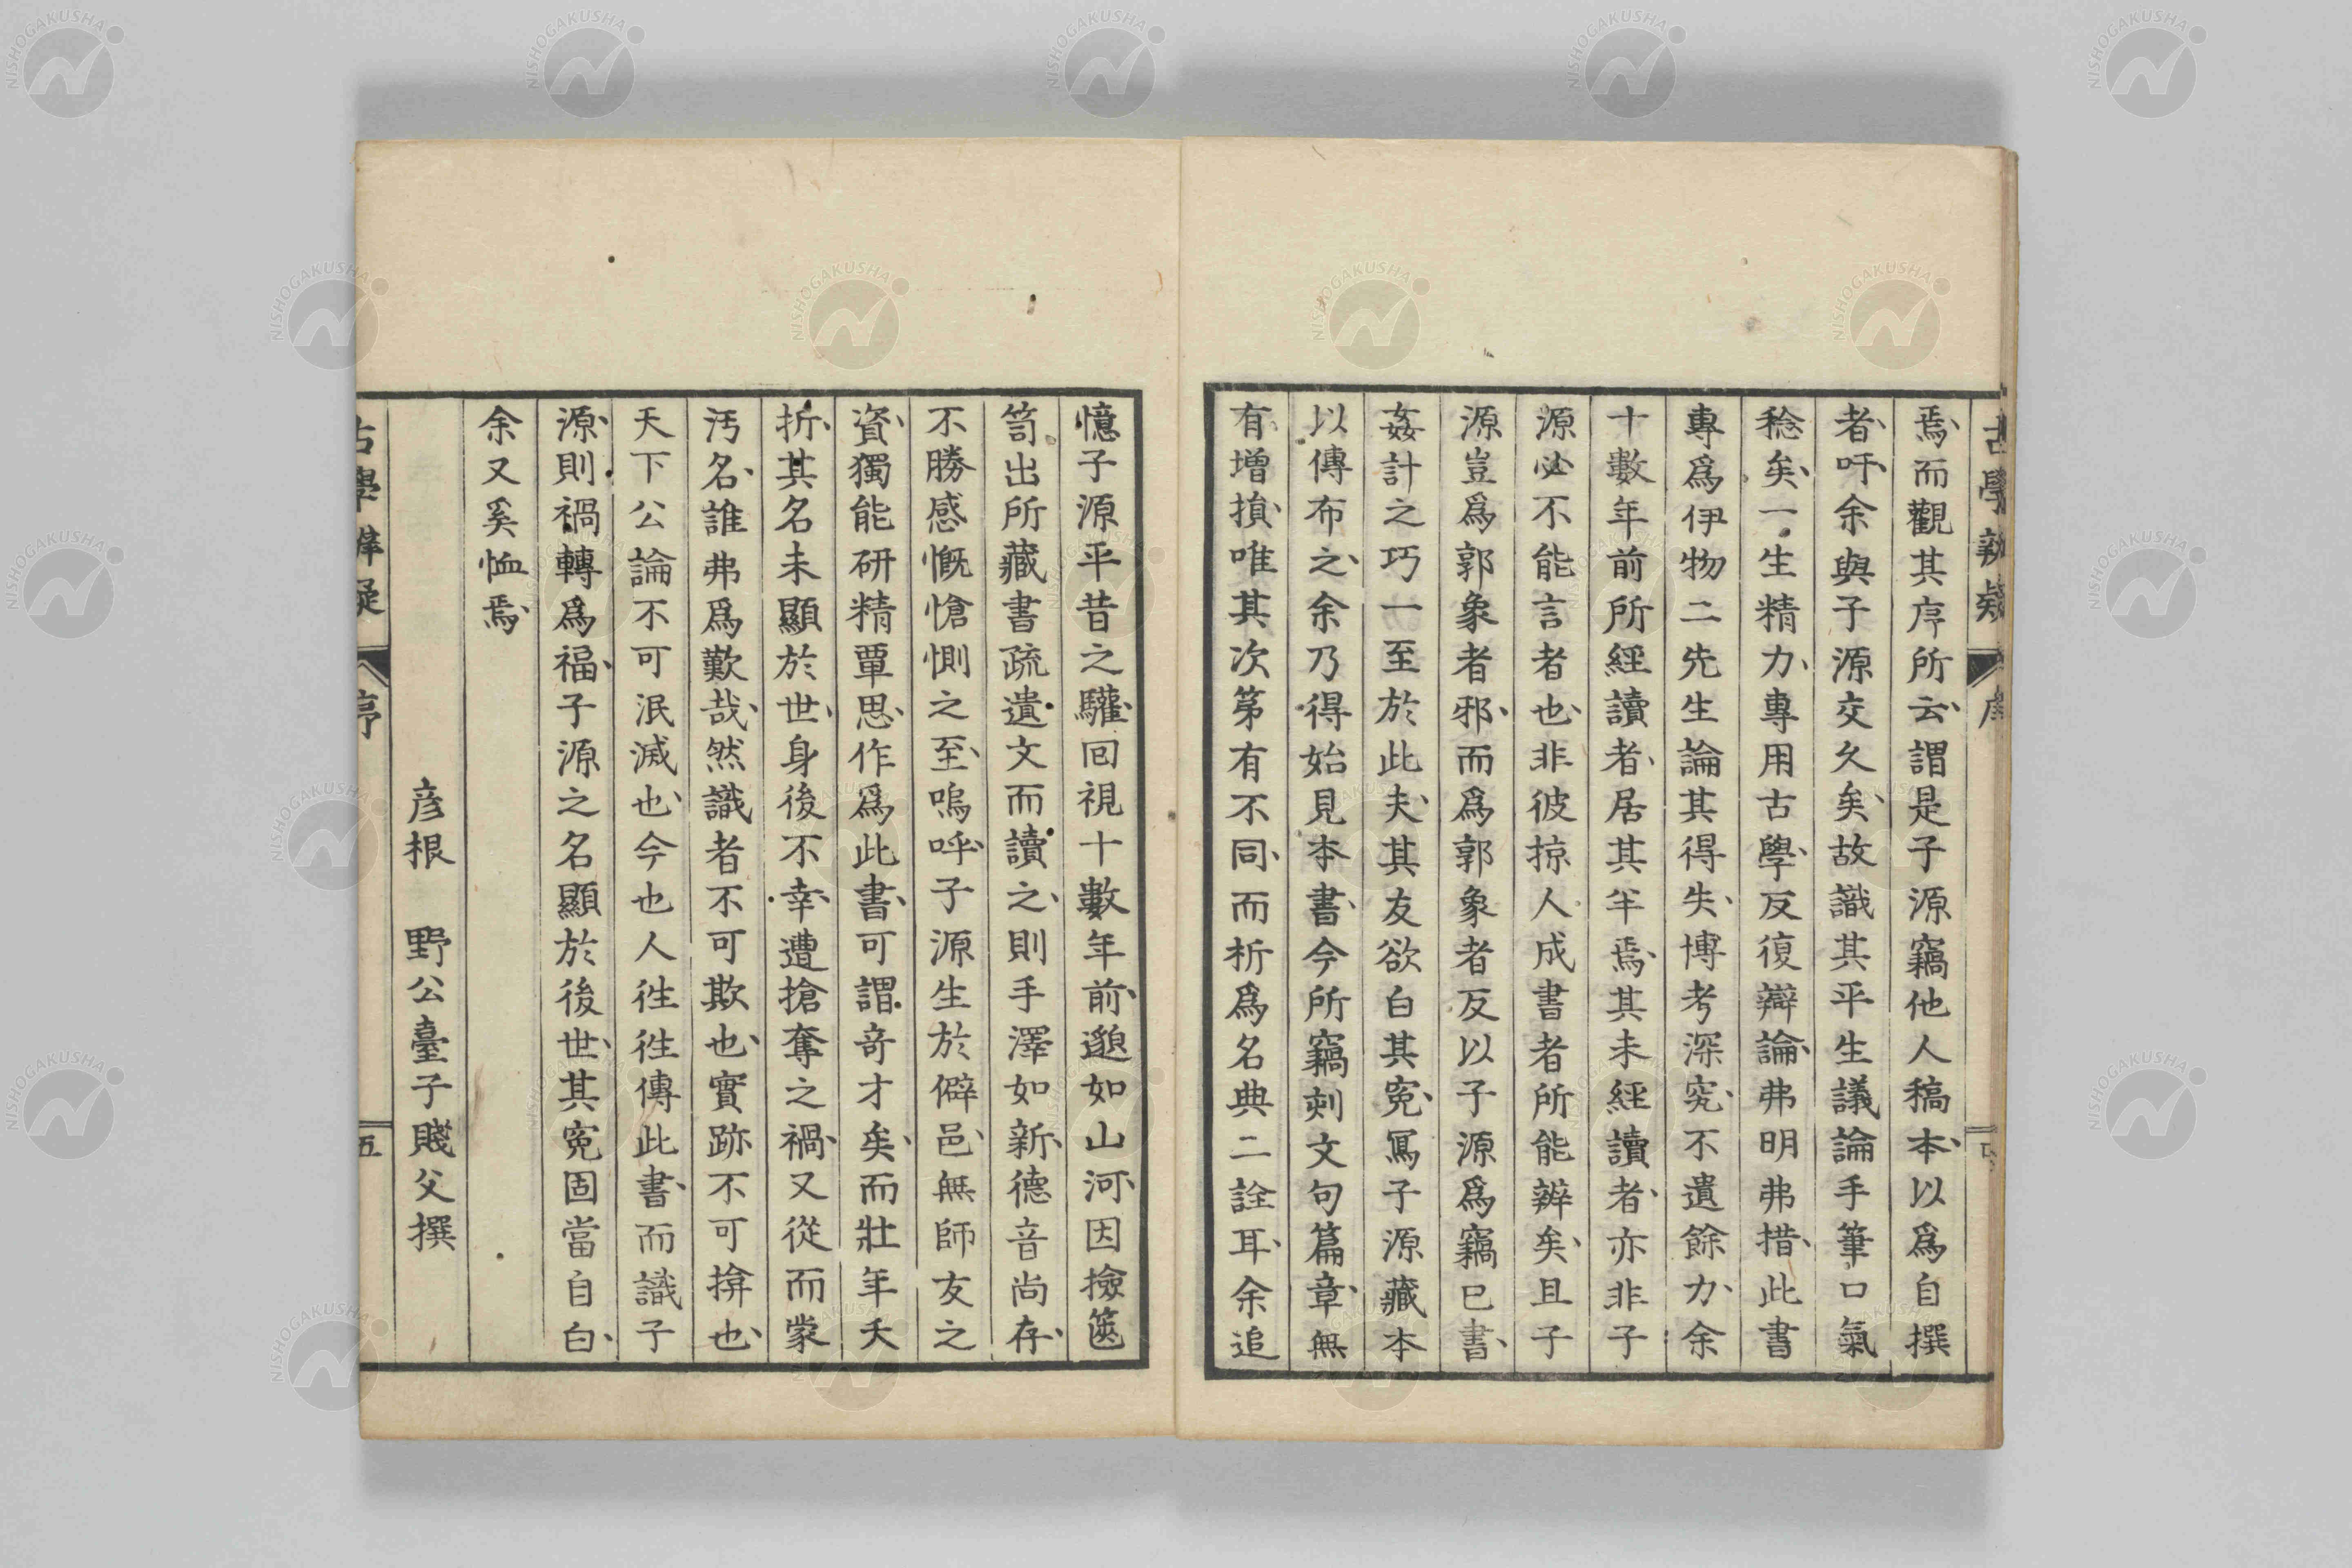 古學辨疑 序
焉、而觀其序所云、謂是子源竊他人稿本、以爲自撰
者、吁、余與子源交久矣、故識其平生議論手筆口氣
稔矣、一生精力、專用古學、反復辯論、弗明弗措、此書
專爲伊物二先生論其得失、博考深究、不遺餘力、余
十數年前所經讀者、居其半焉、其未經讀者、亦非子
源必不能言者也、非彼掠人成書者所能辨矣、且子
源豈爲郭象者邪、而爲郭象者反以子源爲竊已書、
姦計之巧一至於此、夫其友欲白其冤、寫子源藏本
以傳布之、余乃得始見本書、今所竊刻文句篇章、無
有增損、唯其次第有不同、而析爲名典二詮耳、余追
憶子源平昔之驩、回視十數年前、邈如山河、因撿篋
笥出所藏書疏遺文而讀之、則手澤如新、德音尚存、
不勝感慨愴惻之至、嗚呼、子源生於僻邑、無師友之
資、獨能研精覃思、作爲此書、可謂奇才矣、而壯年夭
折、其名未顯於世、身後不幸、遭搶奪之禍、又從而蒙
汚名、誰弗爲歎哉、然識者不可欺也、實跡不可揜也、
天下公論不可泯滅也、今也人往往傳此書、而識子
源、則禍轉爲福、子源之名顯於後世、其冤固當自白、
余又奚恤焉、
彦根 野公臺子賤父撰
古學辨疑 序 五
NISHOGAKUSHA